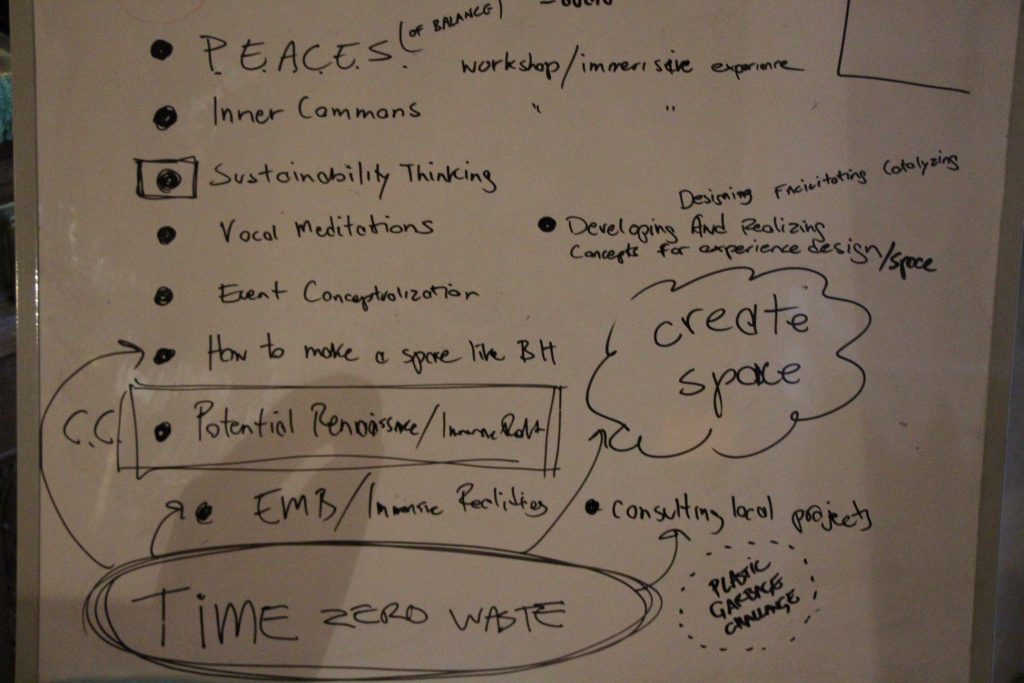 P.E.A.C.E.S. (OF BALANCE)
workshop/immersive experience
Inner Commons " "
Sustainability Thinking
Vocal Meditations
Designing Facicitating Catalyzing
Developing And Realizing
Concepts for experience design/space
Event Conceptualization
create
space
How to make a space like BH
C.C.
Potential Renaissance/
EMB/Immersive Realities
consulting local projects
TiME ZERO WASTE
PLASTIC
GARBAGE
CHALLANGE